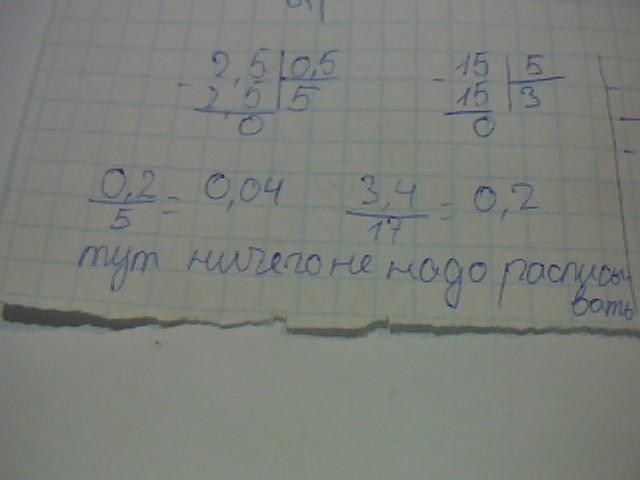 - 2,5 | 0,5 - 15 | 5
2,5 | 5 15 | 3
0 0
0,2/5 = 0,04 3,4/17 = 0,2
тут ничего не надо расписы
вать